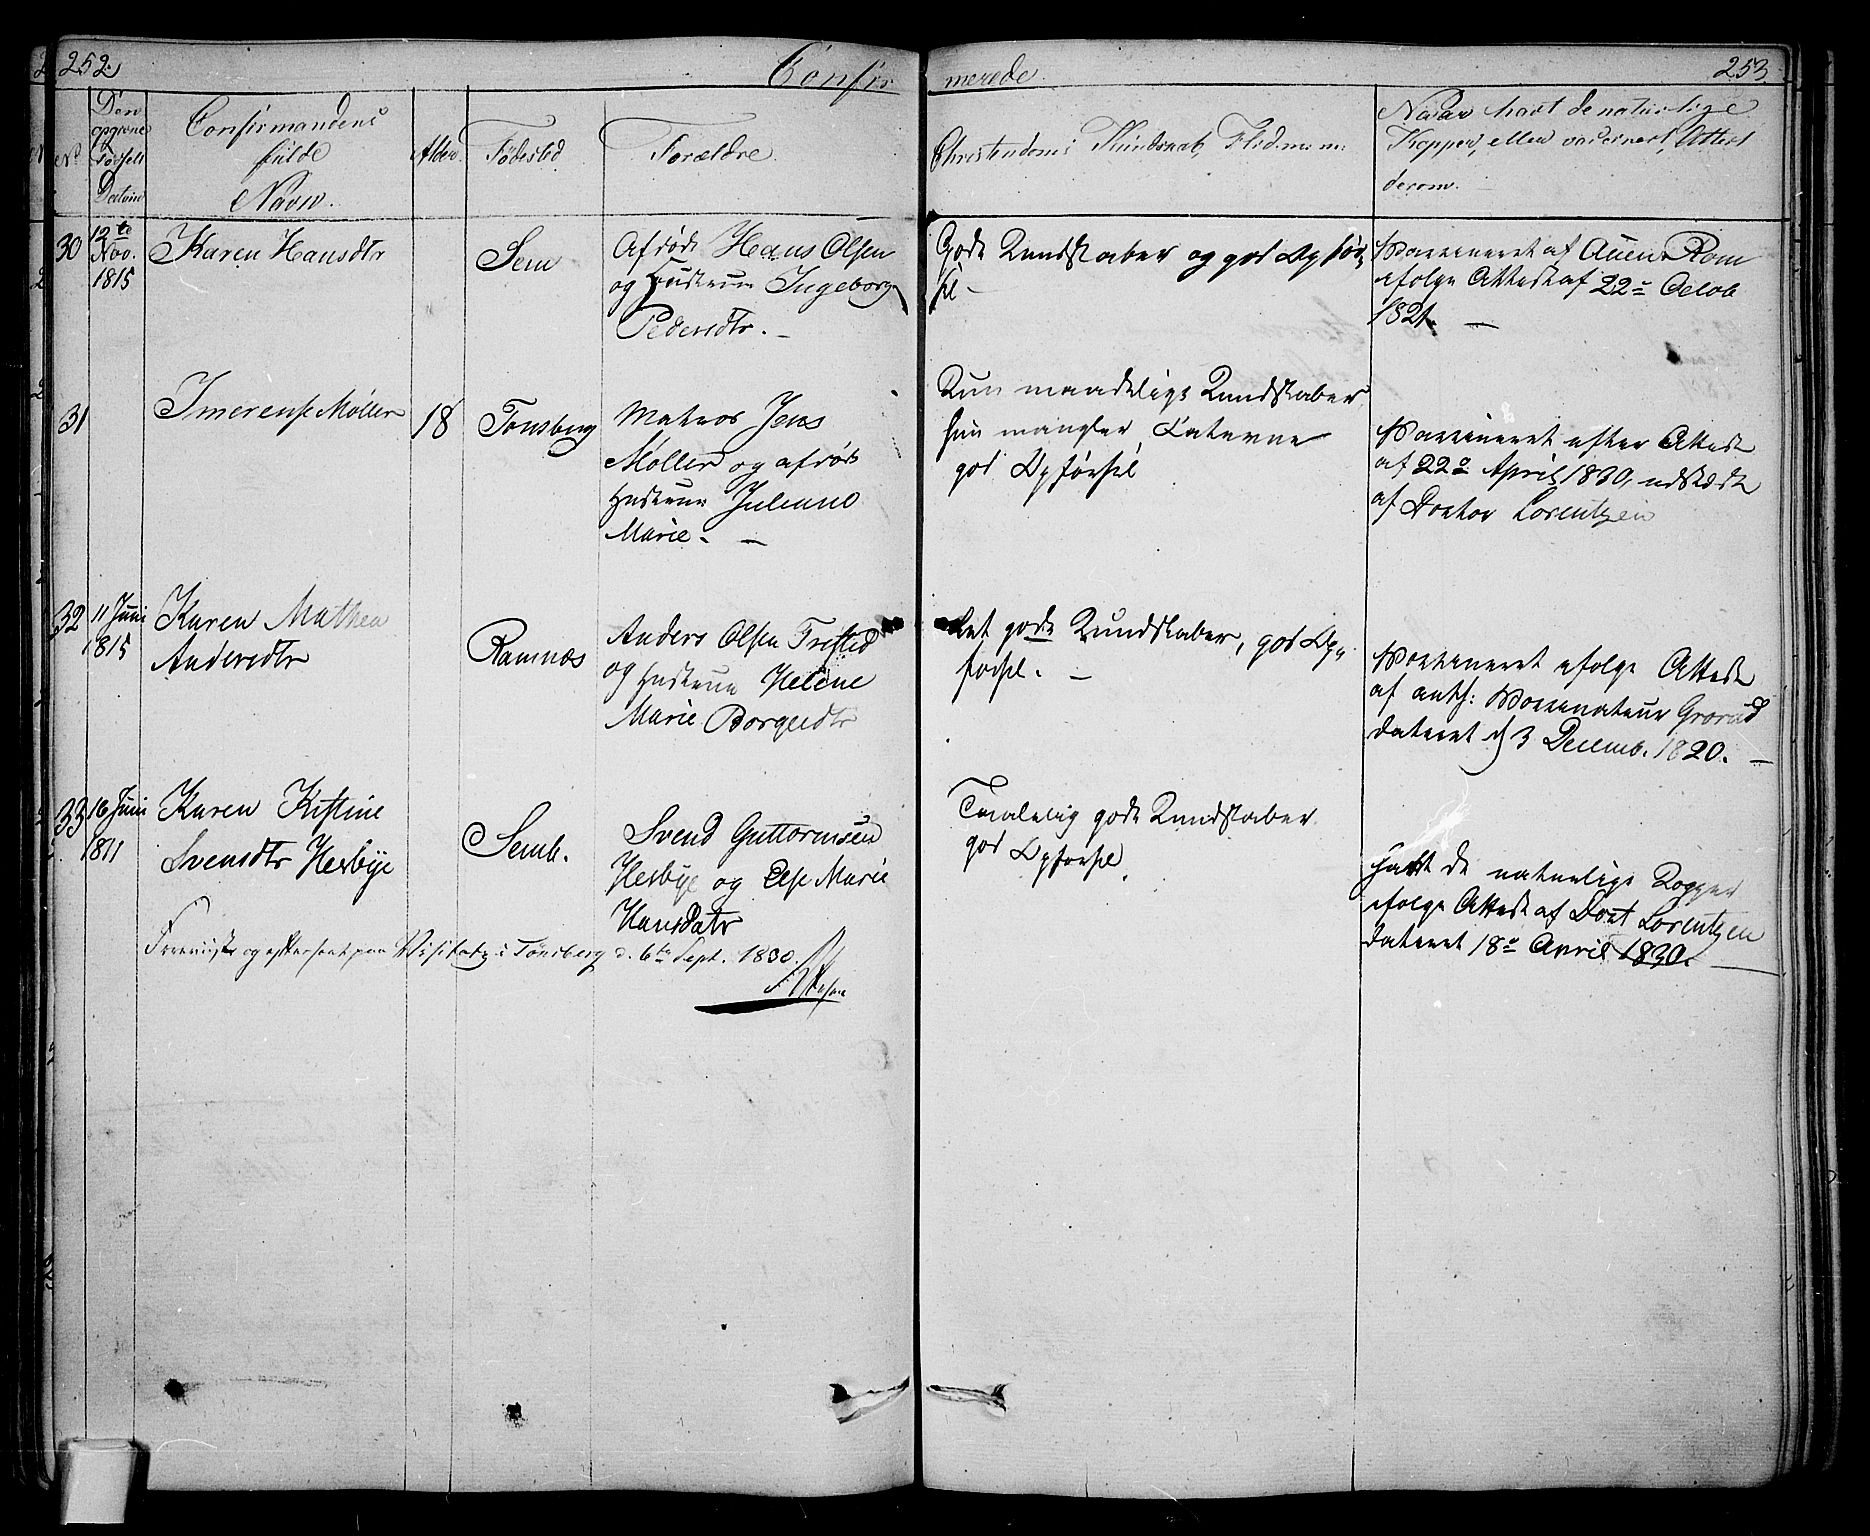 252.
Confir
merede.
253.
No
Den
opgivne
Fødsels
Datum
Confirmandens
fulde
Navn.
Alder.
Fødested
Forældre.
Christendoms Kundskab, Flid m: m:
Naar havt de naturlige
Kopper, eller vaccineret, Attest
derom.
30
12te
Nov.
1815
Karen Hansdtr
Sem
Afdøde Hans Olsen
og Hustrue Ingeborg
Pedersdtr. -
Gode Kundskaber og god Opfør,
sel -
Vaccineret af
ifølge Attest af 22de Octob
1821. -
31
Imerense Møller
18
Tønsberg
Matros Jens
Møller og afdøde
Hustrue Juliane
Marie. -
Kun maadelige Kundskaber
hun mangler
god Opførsel
Vaccineret efter Attest
af 22de April 1830, udstædt
af Doctor Lorentzen
32
11 Juni
1815
Karen Mathea
Andersdtr
Ramnæs
Anders Olsen
og Hustrue Helene
Marie Borgersdtr
Ret gode Kundskaber, god Op,
førsel. -
Vaccineret ifølge Attest
af auth: Vaccinateur
dateret d 3 Decemb. 1820. -
33
16 Juni
1811
Karen Kistine
Svensdtr Hesbye
Semb.
Svend Guttormsen
Hesbye og Else Marie
Hansdatr
Temmelig gode Kundskaber
god Opførsel.
Havt de naturlige Kopper
ifølge Attest af Doct Lorentzen
dateret 18de April 1830. -
Foreviist og efterseet paa Visitatz i Tønsberg d. 6te Sept. 1830.